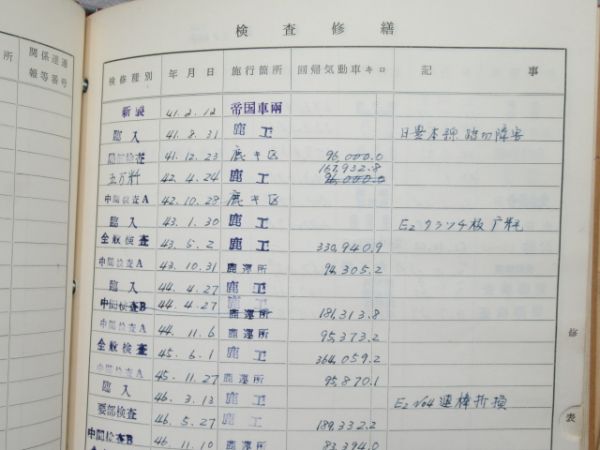 検査修繕
所 関係達通報等番号
検修種別 年月日 施行箇所 回帰気動車キロ 記事
新製 41.2.12 帝国車両
臨入 41.8.31 鹿工 日豊本線 踏切障害
41.12.23 鹿キ区 96,000.0
五万粁 42.4.24 鹿工 167,932.8 96,000.0
中間検査A 42.10.28 鹿キ区
臨入 43.1.30 鹿工 E2 クラッチ板
全般検査 43.5.2 鹿工 330,940.9
中間検査A 43.10.31 鹿運所 94,305.2
臨入 44.4.27 鹿工
中間検査B 44.4.27 鹿工 鹿運所 186,313.8
中間検査A 44.11.6 鹿運所 95,373.2
全般検査 45.6.1 鹿工 364,059.2
中間検査A 45.11.27 鹿運所 95,870.1
臨入 46.3.13 鹿工 E2 No4 連棒折損
要部検査 46.5.27 鹿工 189,332.2
中間検査B 46.11.10 鹿運所 83,394.0
修
表